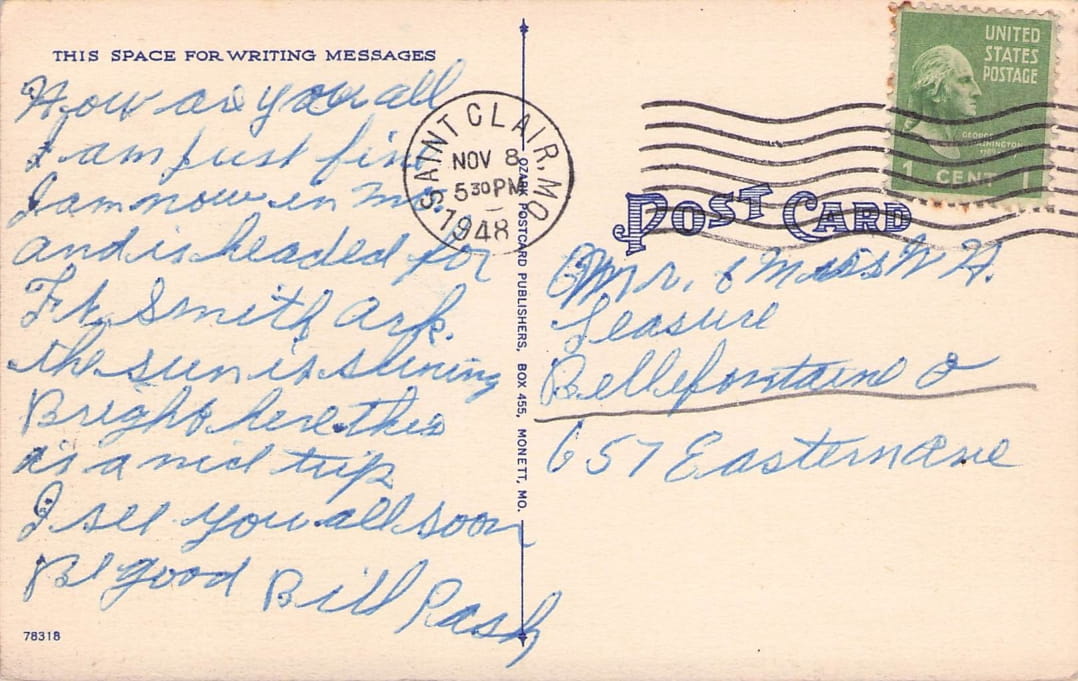 THIS SPACE FOR WRITING MESSAGES
How are you all
I am just fine
I am now in Mo.
and is headed for
Ft. Smith Ark.
the sun is shining
Bright here. this
is a nice trip
I see you all soon
Be good Bill Pash
78318
OZARK POSTCARD PUBLISHERS, BOX 455, MONETT, MO.
SAINT CLAIR, MO.
NOV 8
5 30 PM
1948
UNITED
STATES
POSTAGE
GEORGE
WASHINGTON
1 CENT 1
POST CARD
Mr. & Mrs W H.
Leasure
Bellefontaine O
657 Eastern ave